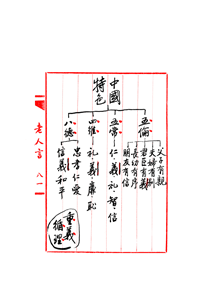 中國
特色
五倫
父子有親
夫婦有別
君臣有義
長幼有序
朋友有信
五常
仁、義、礼、智、信
四維
礼、義、廉、恥
八德
忠孝仁愛
信義和平
重義
循理
老人言
八一